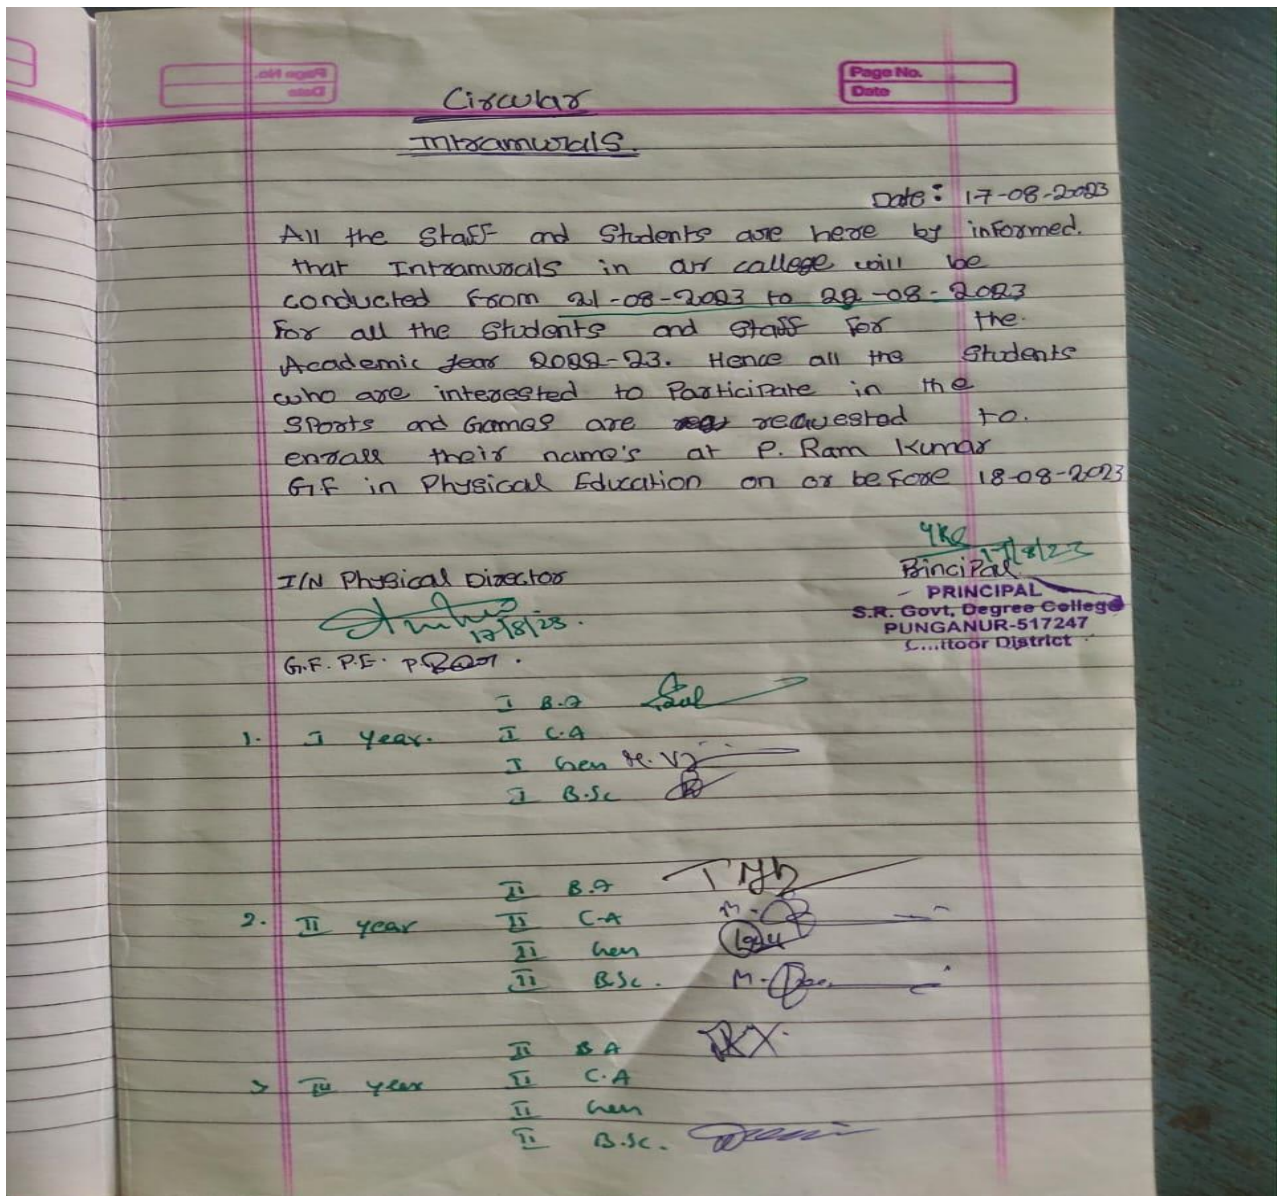 Page No.
Date
Circular
Intramurals.
Date: 17-08-2023
All the Staff and Students are here by informed.
that Intramurals in our college will be
conducted from 21-08-2023 to 22-08-2023
for all the Students and Staff for the.
Academic year 2022-23. Hence all the Students
who are interested to Participate in the
Sports and Games are requested to.
enroll their name's at P. Ram Kumar
GF in Physical Education on or before 18-08-2023
17/8/23
I/N Physical Director
Principal
PRINCIPAL
S.R. Govt. Degree College
PUNGANUR-517247
C...ttoor District
17/8/23.
G.F. P.E. P.
I B.A
1. I Year. I C.A
I Gen
I B.Sc
II B.A
2. II year II C.A
II Gen
II B.Sc.
II B A
3 III year II C.A
II Gen
II B.Sc.